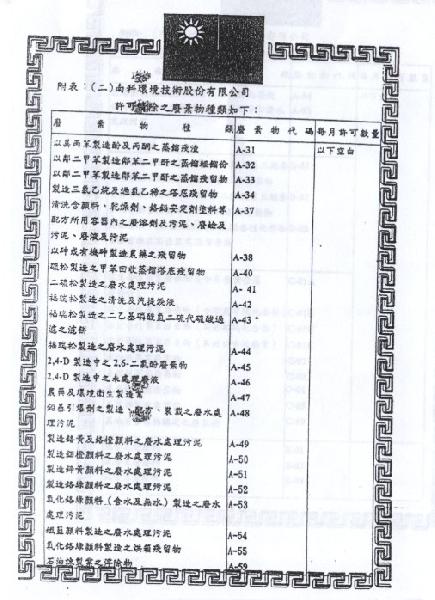 附表：(二)南科環境技術股份有限公司
許可清除之廢棄物種類如下：
廢棄物種類 廢棄物代碼 每月許可數量
以異丙苯製造酚及丙酮之蒸餾殘渣 A-31 以下空白
以鄰二甲苯製造鄰苯二甲酐之蒸餾輕餾份 A-32
以鄰二甲苯製造鄰苯二甲酐之蒸餾殘留物 A-33
製造三氯乙烷及過氯乙烯之塔底殘留物 A-34
清洗含顏料、乾燥劑、鉻鉛安定劑塗料等 A-37
配方所用容器內之廢溶劑及污泥、廢鹼及
污泥、廢液及污泥
以砷或有機砷製造農藥之殘留物 A-38
硫松製造之甲苯回收蒸餾塔底殘留物 A-40
二硫松製造之廢水處理污泥 A-41
福瑞松製造之清洗及汽提殘液 A-42
福瑞松製造之二乙基磷酸氫二硫代硫礆過 A-43
濾之濾餅
福瑞松製造之廢水處理污泥 A-44
2,4-D 製造中之 2,6-二氯酚廢棄物 A-45
2,4-D 製造中之未處理廢液 A-46
農藥及環境衛生製造業 A-47
起引爆劑之製造、配方、裝載之廢水處 A-48
理污泥
製造鉻黃及鉻橙顏料之廢水處理污泥 A-49
製造鉬橙顏料之廢水處理污泥 A-50
製造鋅黃顏料之廢水處理污泥 A-51
製造鉻綠顏料之廢水處理污泥 A-52
氧化鉻綠顏料(含水及無水)製造之廢水 A-53
處理污泥
鐵藍顏料製造之廢水處理污泥 A-54
氧化鉻綠顏料製造之烘箱殘留物 A-55
石油煉製業之浮除物 A-59